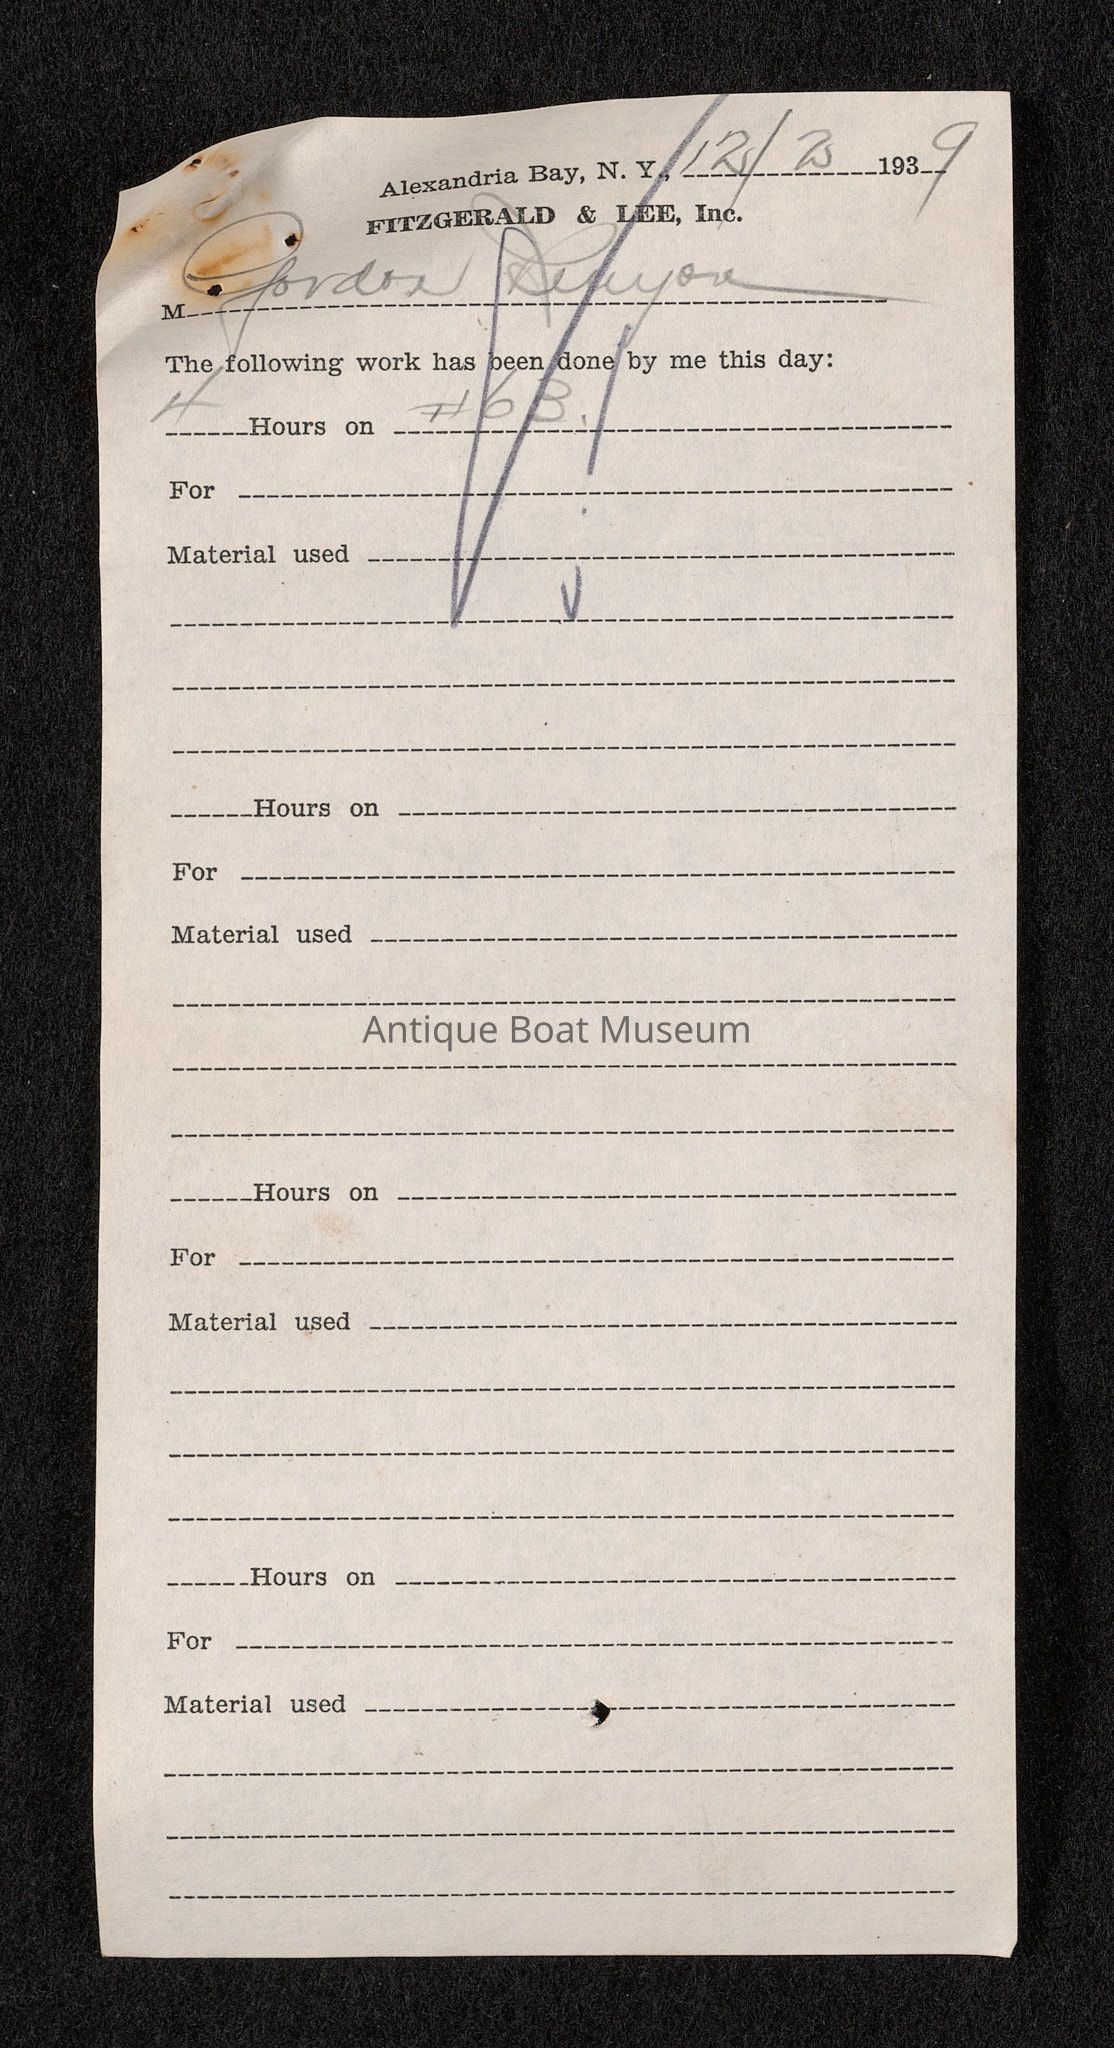 Alexandria Bay, N. Y., 12/2 1939
FITZGERALD & LEE, Inc.
M Gordon Kenyon
The following work has been done by me this day:
4 Hours on #63.
For
Material used
Hours on
For
Material used
Antique Boat Museum
Hours on
For
Material used
Hours on
For
Material used